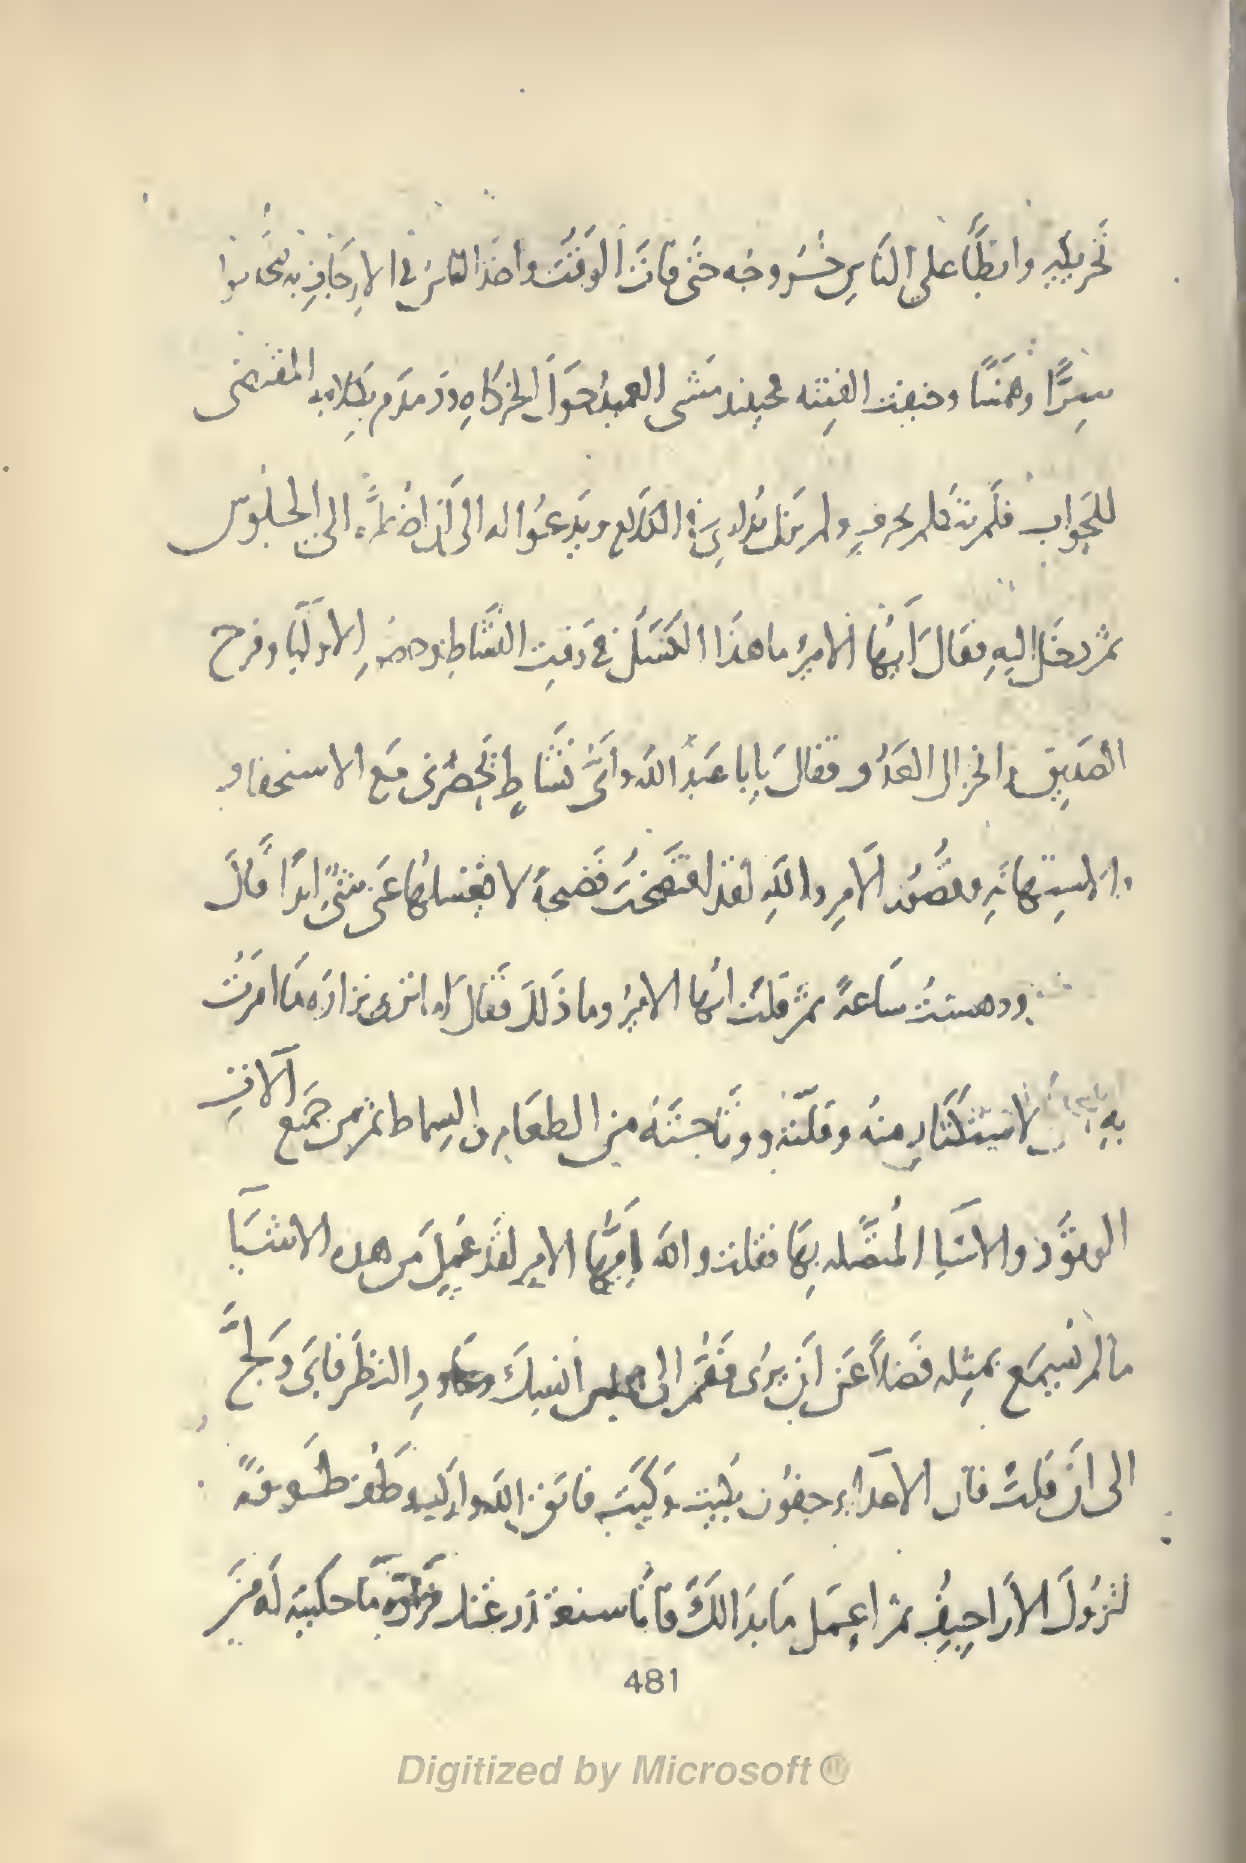 تخريبه وابطأ على الناس خروجه حتى فات الوقت واخذ الناس فى الارجاف به
سرًّا وهمسًا وخيفت الفتنه فحينيذ مشى العميد حوالى الخركاه ودمدم بكلامه المقتضى
للجواب فلم يتكلم بحرفٍ ولم يزل الكلام ويدعوا له الى ان الى الجلوس
ثم دخل اليه فقال ايها الامير ما هذا الكسل فى وقت النشاط الاوليا وفرح
الصديق وانخزال العدو فقال يابا عبد الله واىّ نشاط يحضرنى مع الاستحقار
والاستهانه وقصور الامر والله لقد افتضحت فضيحة لا يغسلها عنى شىء ابدًا قال
ودهشت ساعةً ثم قلت ايها الامير وما ذلك فقال اما ترى نزارة ما امرت
به لاستكثار منه وقلته ووتاحته من الطعام فى السماط ثم من جميع الآلات
الوقود والاشيا المتصله بها فقلت والله ايها الامير لقد عمل من هذه الاشيا
ما لم نسمع بمثله فضلاً عن ان يرى فقم الى مجلس انسك وعاود النظر فابى ولجّ
الى ان قلت فان الاعداء فاتق الله واركب وطف طوفة
لتزول الاراجيف ثم اعمل ما بدا لك
481
Digitized by Microsoft ®